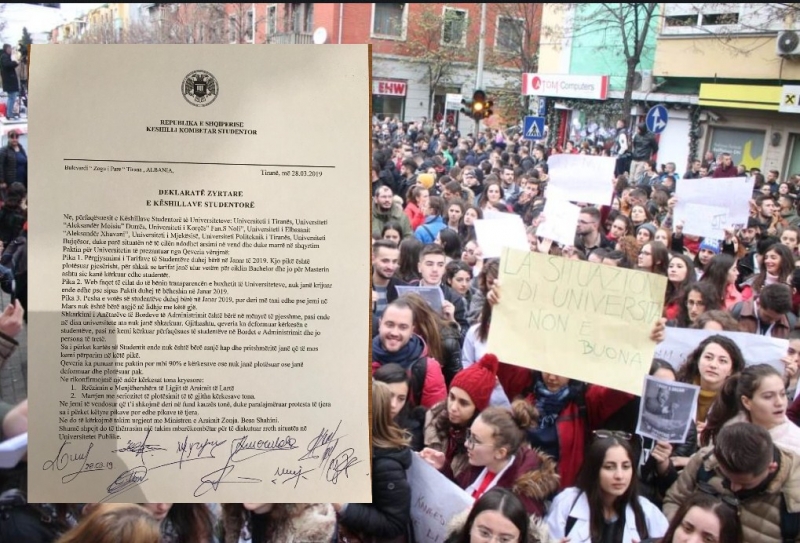 REPUBLIKA E SHQIPERISE
KESHILLI KOMBETAR STUDENTOR
Bulevardi " Zogu i Pare " Tirane , ALBANIA,
Tiranë, më 28.03.2019
DEKLARATË ZYRTARE
E KËSHILLAVE STUDENTORË
Ne, përfaqësuesit e Këshillave Studentorë të Universiteteve: Universiteti i Tiranës, Universiteti
"Aleksandër Moisiu" Durrës, Universiteti i Korçës" Fan.S Noli", Universiteti i Elbasanit
"Aleksandër Xhuvani", Universiteti i Mjekësisë, Universiteti Politeknik i Tiranës, Universiteti
Bujqësor, duke parë situatën në të cilën ndodhet arsimi në vend dhe duke marrë në shqyrtim
Paktin për Universitetin të prezantuar nga Qeveria vërejmë:
Pika 1. Përgjysmimi i Tarifave të Studentëve duhej bërë në Janar të 2019. Kjo pikë është
plotësuar pjesërisht, për shkak se tarifat janë ulur vetëm për ciklin Bachelor dhe jo për Masterin
ashtu siç kanë kërkuar edhe studentët.
Pika 2. Web faqet të cilat do të bënin transparencën e buxhetit të Universiteteve, nuk janë krijuar
ende edhe pse sipas Paktit duhej të bëheshin në Janar 2019.
Pika 3. Pesha e votës së studentëve duhej bërë në Janar 2019, por deri më tani edhe pse jemi në
Mars nuk është bërë asnjë në lidhje me këtë gjë.
Shkrirja i Anëtarëve të Bordeve të Administrimit është bërë në mënyrë të pjesshme, pasi ende
në disa universitete ata nuk janë shkarkuar. Gjithashtu, qeveria ka deformuar kërkesën e
studentëve, pasi në kemi kërkuar përfaqësues të studentëve në Bordet e Administrimit dhe jo
persona të tretë.
Sa i përket kartës së Studentit ende nuk është bërë asnjë hap dhe prishmëritë janë që të mos
kemi përparim në këtë pikë.
Qeveria ka punuar me paktin por mbi 90% e kërkesave ose nuk janë plotësuar ose janë
deformuar dhe plotësuar pak.
Ne rikonfirmojmë një ndër kërkesat tona kryesore:
1. Rrëzimin e Menjëhershëm të Ligjit të Arsimit të Lartë
2. Marrjen me seriozitet të plotësimit të të gjitha kërkesave tona.
Ne jemi të vendosur që t'i shkojmë deri në fund kauzës tonë, duke paralajmëruar protesta të tjera
sa i përket këtyre pikave por edhe pikave të tjera.
Ne do të kërkojmë takim urgjent me Ministren e Arsimit Zonja. Besa Shahini.
Shumë shpejt do të thërrasim një takim mbarëkombëtar për të diskutuar rreth situatës në
Universitetet Publike.
28.03.19
EHW
ATOM Computers
LA
UNIVERSITA
NON È
BUONA